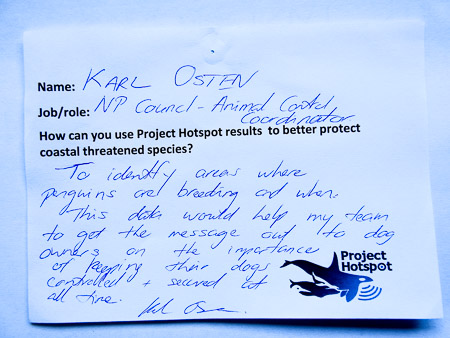 Name: KARL OSTEN
Job/role: NP Council - Animal Control
Coordinator
How can you use Project Hotspot results to better protect
coastal threatened species?
To identify areas where
penguins are breeding and when.
This data would help my team
to get the message out to dog
owners on the importance
of keeping their dogs
controlled + secured at
all time.
Project
Hotspot